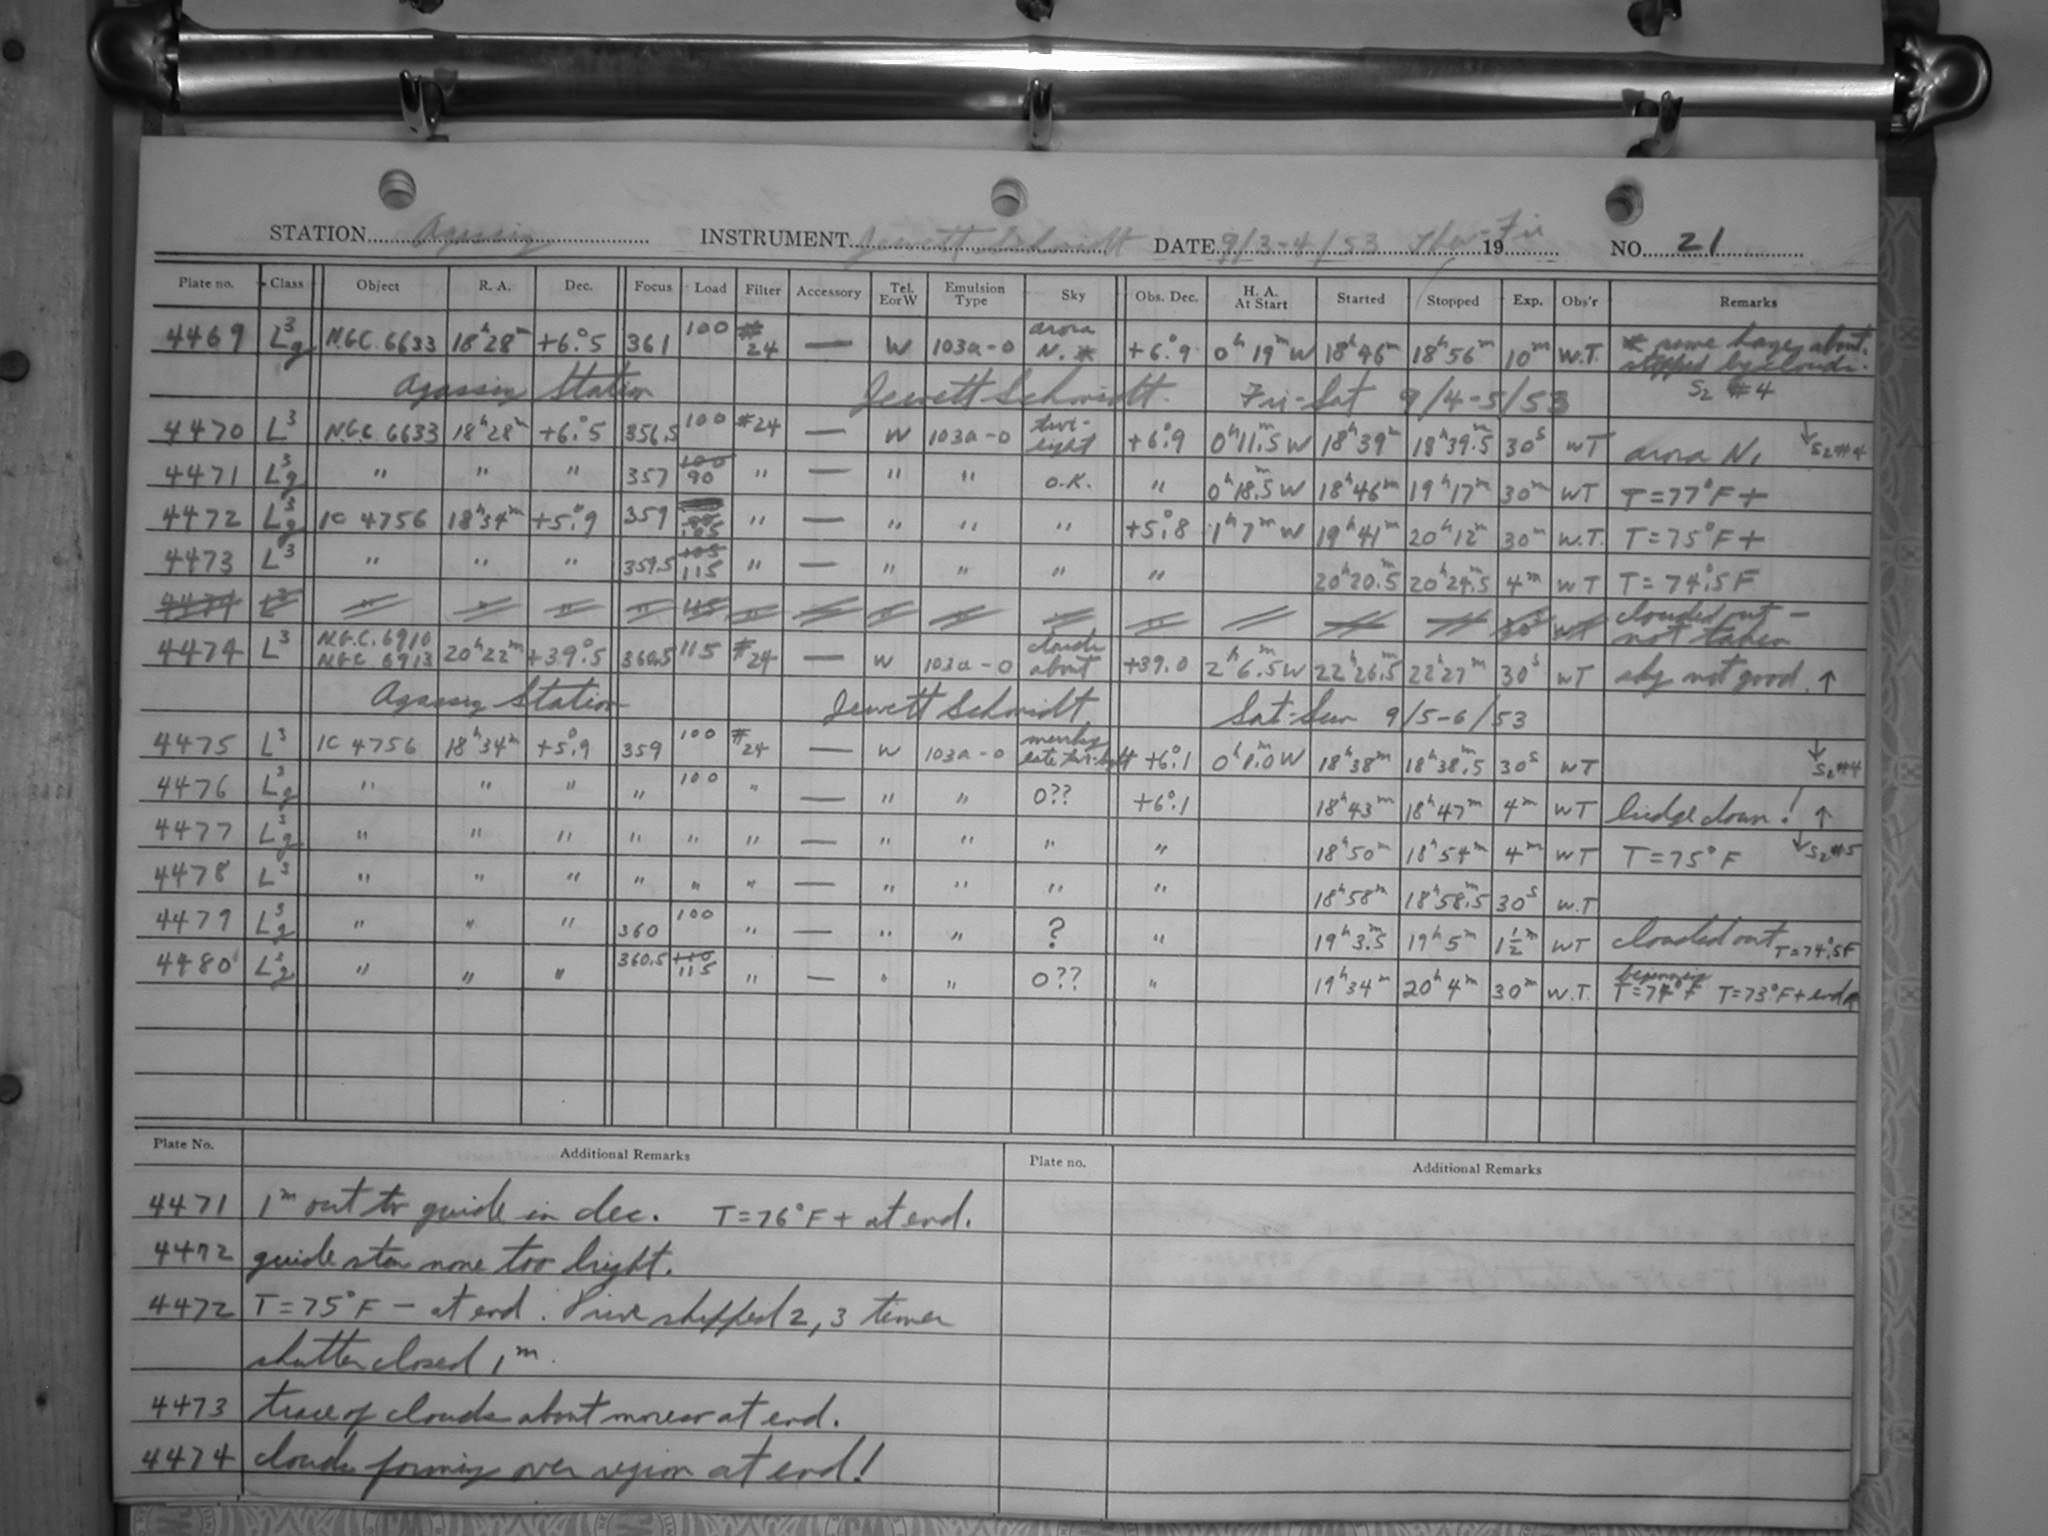 STATION Agassiz INSTRUMENT Jewett Schmidt DATE 9/3-4/53 Thu-Fri 19 NO. 21
Plate no. Class Object R. A. Dec. Focus Load Filter Accessory Tel. E or W Emulsion Type Sky Obs. Dec. H. A. At Start Started Stopped Exp. Obs'r Remarks
4469 L3g N.G.C. 6633 18h28m +6°.5 361 100 #24 — W 103a-O arora N. * +6°.9 0h19mW 18h46m 18h56m 10m W.T. * some haze about. stopped by clouds.
Agassiz Station Jewett Schmidt Fri-Sat 9/4-5/53 S2 #4
4470 L3 N.G.C. 6633 18h28m +6°.5 356.5 100 #24 — W 103a-O twi-light +6°.9 0h11m.5W 18h39m 18h39m.5 30s WT arora N. ↓S2#4
4471 L3g " " " 357 100 90 " — " " O.K. " 0h18m.5W 18h46m 19h17m 30m WT T=77°F+
4472 L3g IC 4756 18h34m +5°.9 359 105 " — " " " +5°.8 1h7mW 19h41m 20h12m 30m W.T. T=75°F+
4473 L3 " " " 359.5 105 115 " — " " " " 20h20m.5 20h24m.5 4m WT T=74°.5F
4474 L3 " " " " 115 " — " " " " " 30s WT clouded out - not taken
4474 L3 N.G.C. 6910 NGC 6913 20h22m +39°.5 360.5 115 #24 — W 103a-O clouds about +39.0 2h6m.5W 22h26m.5 22h27m 30s WT sky not good ↑
Agassiz Station Jewett Schmidt Sat-Sun 9/5-6/53
4475 L3 IC 4756 18h34m +5°.9 359 100 #24 — W 103a-O late twi-light +6°.1 0h8m.0W 18h38m 18h38m.5 30s WT ↓S2#4
4476 L3g " " " " 100 " — " " O?? +6°.1 18h43m 18h47m 4m WT bridge down! ↑
4477 L3g " " " " " " — " " " " 18h50m 18h54m 4m WT T=75°F ↓S2#5
4478 L3 " " " " " " — " " " " 18h58m 18h58m.5 30s W.T
4479 L3g " " " 360 100 " — " " ? " 19h3m.5 19h5m 1½m WT clouded out T=74°.5F
4480 L3g " " " 360.5 110 115 " — " " O?? " 19h34m 20h4m 30m W.T. beginning T=74°F T=73°F+ end ↑
Plate No. Additional Remarks Plate no. Additional Remarks
4471 1m out to guide in dec. T=76°F+ at end.
4472 guide star none too bright.
4472 T=75°F - at end. slipped 2, 3 times
shutter closed 1m.
4473 trace of clouds about at end.
4474 clouds forming over region at end!